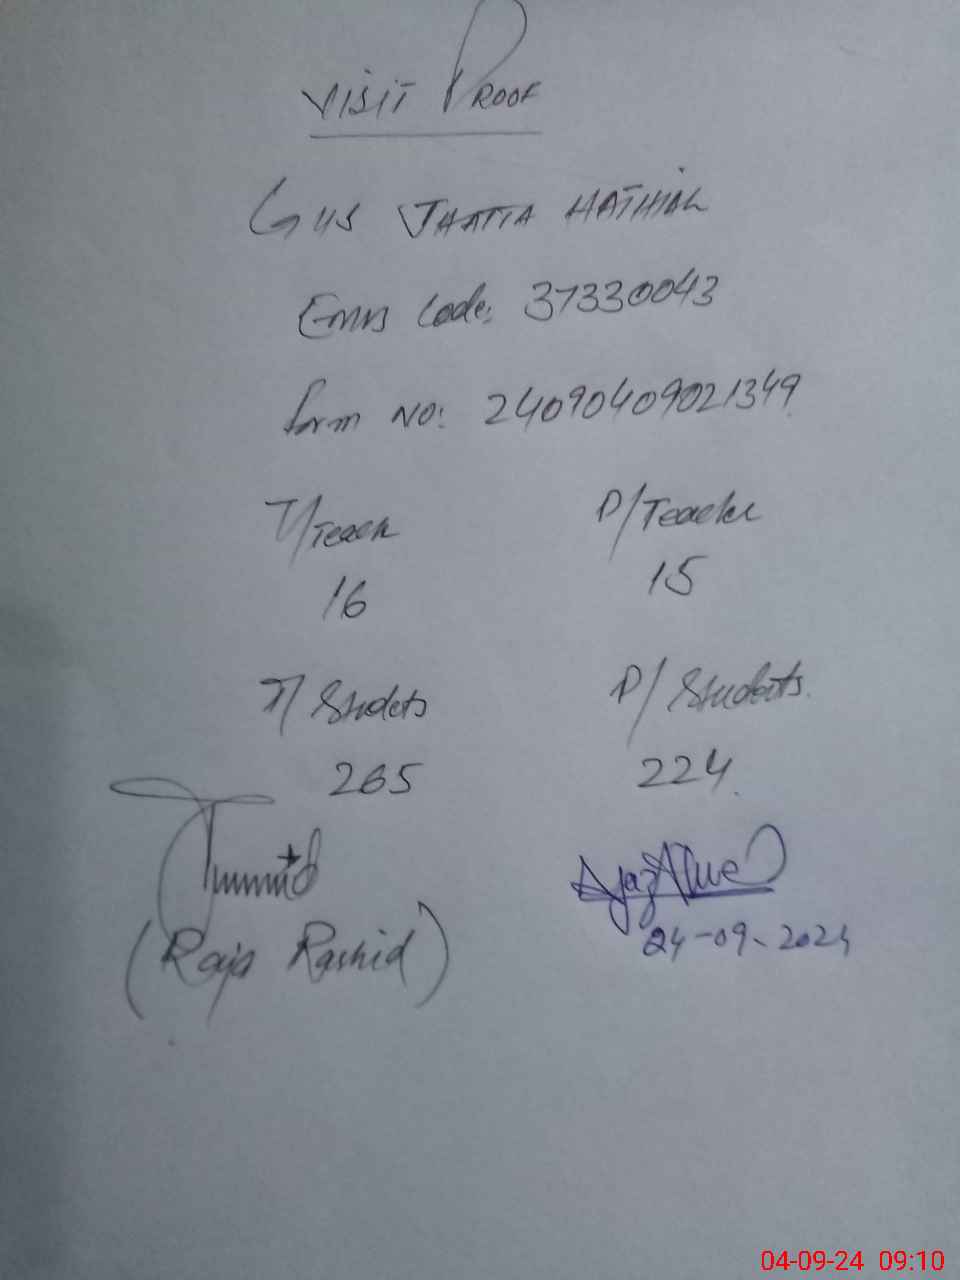 VISIT PROOF
GHS JHATTA HATHIAL
Emis Code: 37330043
form NO: 24090409021349
T/Teach P/Teacher
16 15
T/Studets P/Students
265 224
AjazAhmed
(Raja Rashid) 24-09-2024
04-09-24 09:10